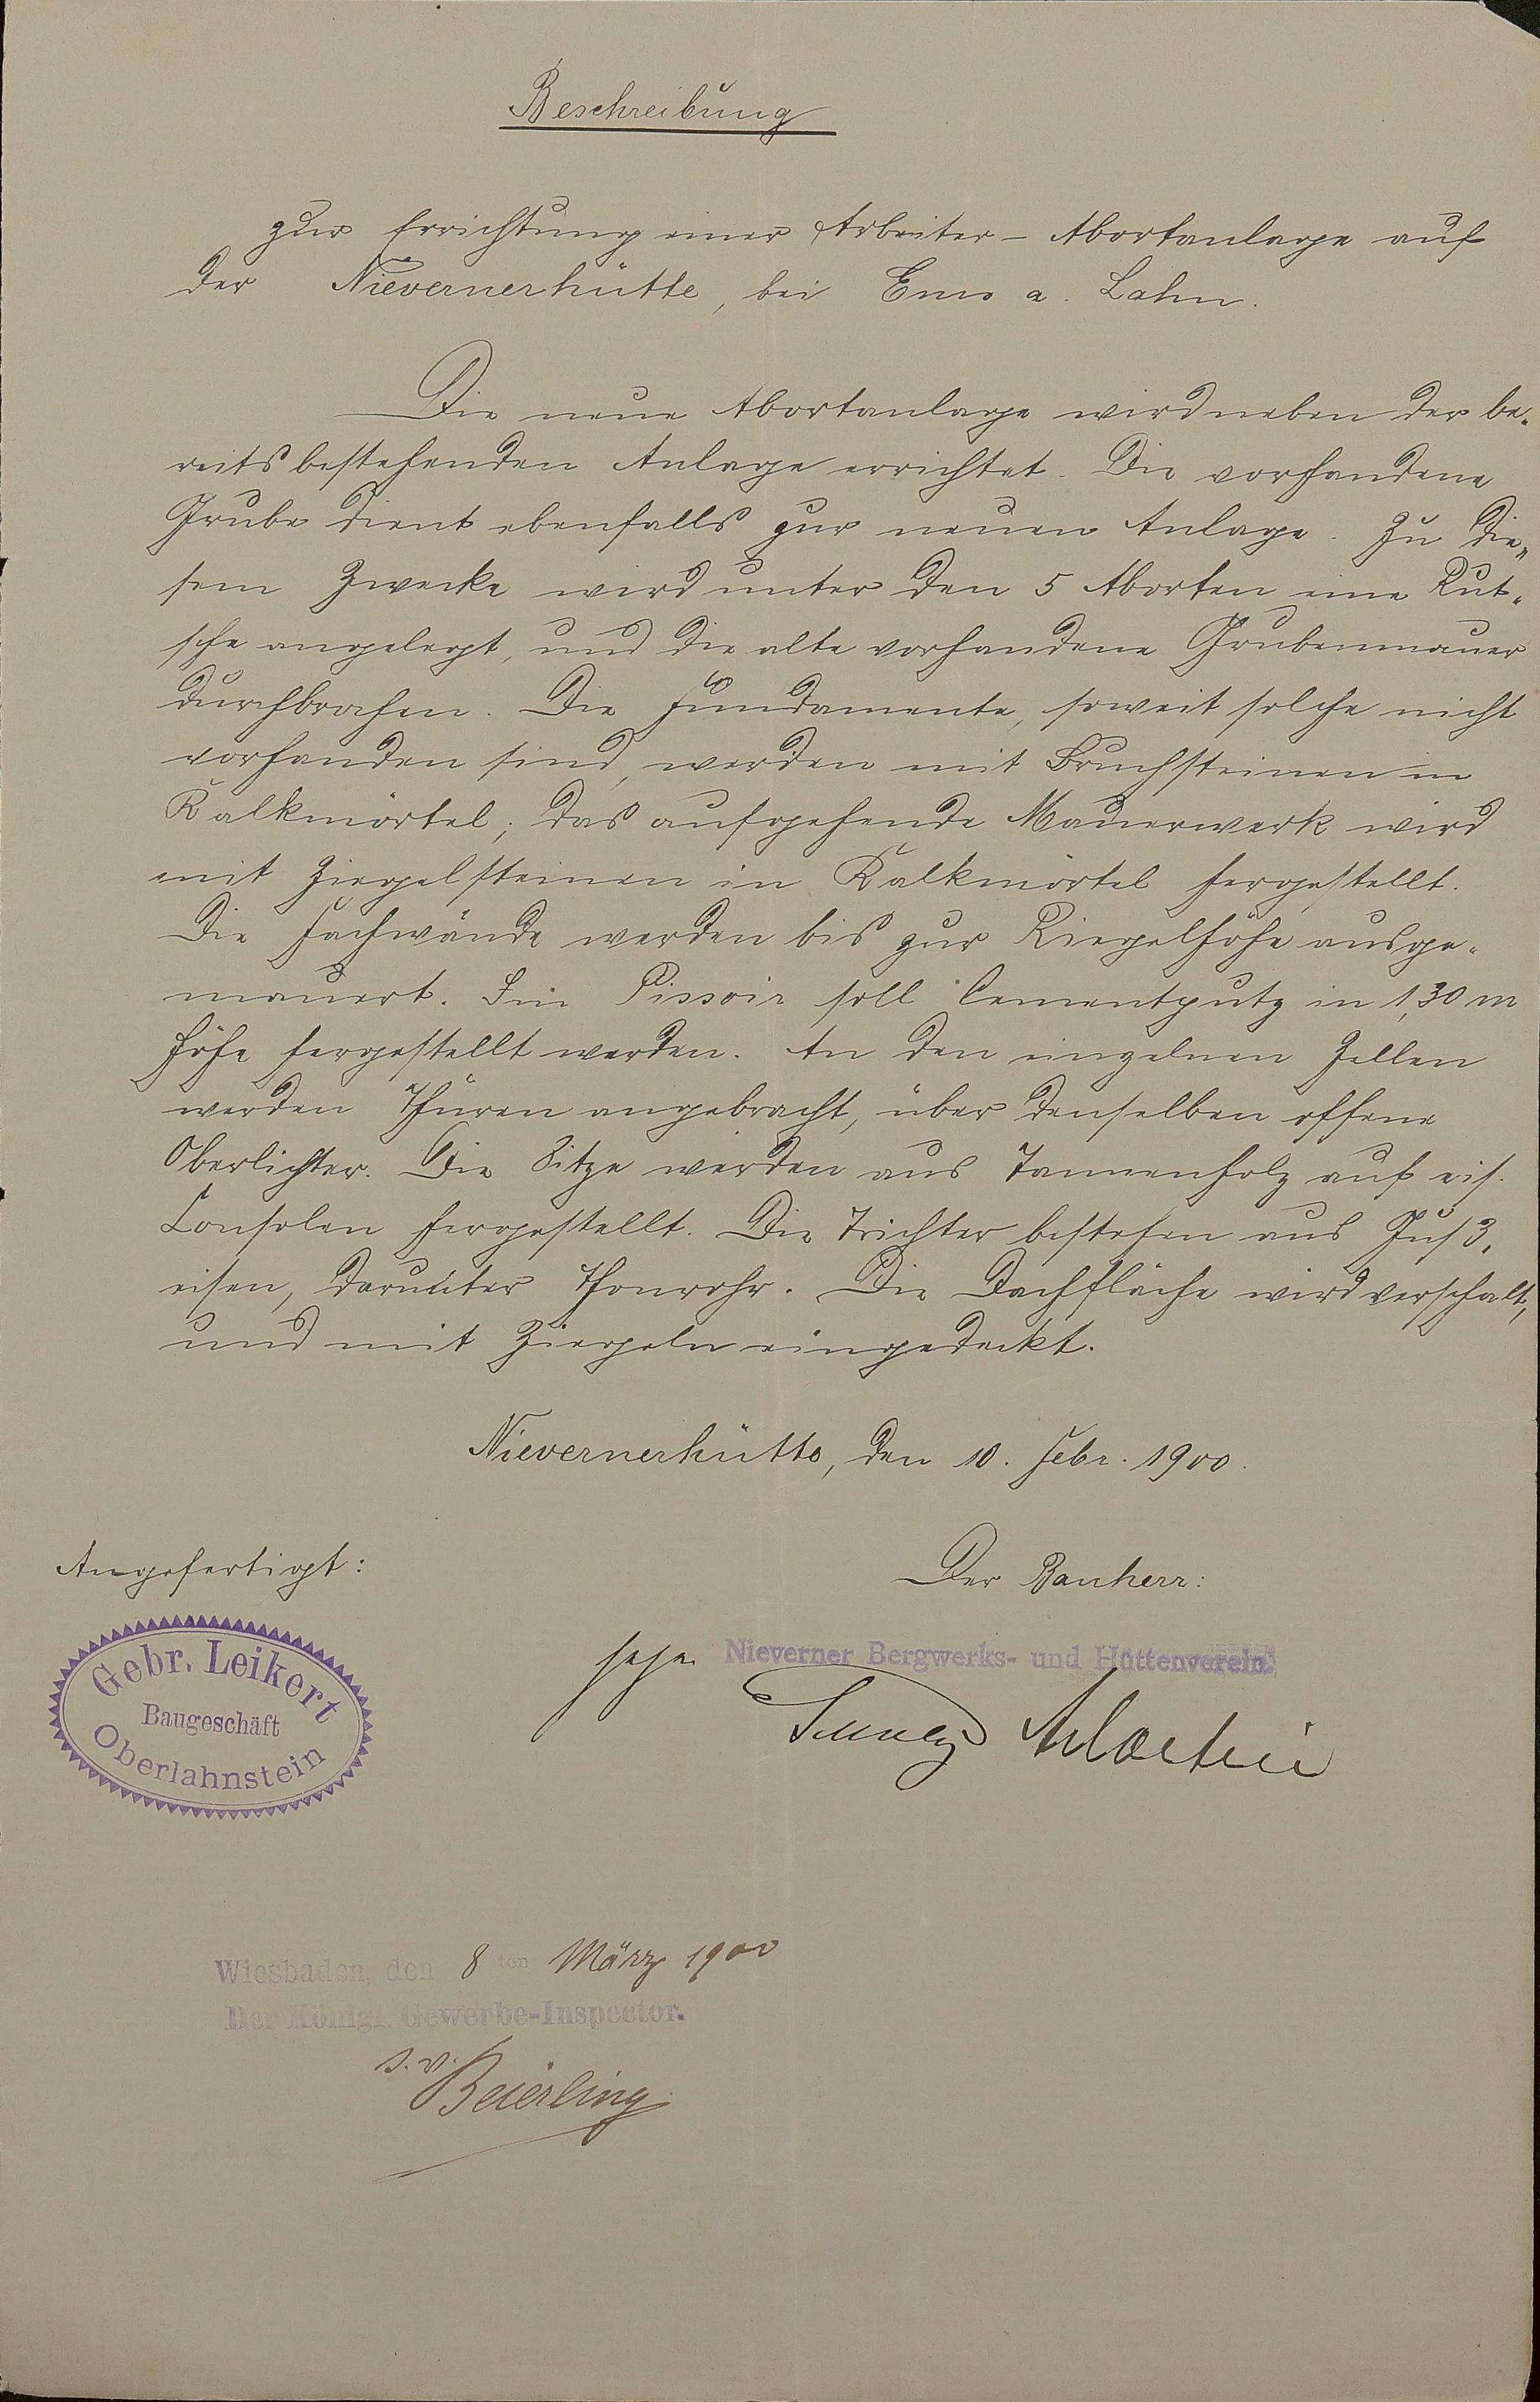 Beschreibung
zur Errichtung einer Arbeiter-Abortanlage auf
der Nievernerhütte, bei Ems a. Lahn.
Die neue Abortanlage wird neben der be-
reits bestehenden Anlage errichtet. Die vorhandene
Grube dient ebenfalls zur neuen Anlage. Zu die-
sem Zwecke wird unter den 5 Aborten eine Rut-
sche angelegt, und die alte vorhandene Grubenmauer
durchbrochen. Die Fundamente, soweit solche nicht
vorhanden sind, werden mit Bruchsteinen in
Kalkmörtel; das aufgehende Mauerwerk wird
mit Ziegelsteinen in Kalkmörtel hergestellt.
Die Fachwände werden bis zur Riegelhöhe ausge-
mauert. Im Pissoir soll Cementputz in 1,30 m
Höhe hergestellt werden. An den einzelnen Zellen
werden Thüren angebracht, über denselben offene
Oberlichter. Die Sitze werden aus Tannenholz auf eis.
Consolen hergestellt. Die Trichter bestehen aus Guß-
eisen, darunter Thonrohr. Die Dachfläche wird verschalt,
und mit Ziegeln eingedeckt.
Nievernerhütte, den 10. Febr. 1900.
Angefertigt:
Der Bauherr:
Gebr. Leikert
Baugeschäft
Oberlahnstein
Nieverner Bergwerks- und Hüttenverein.
Martin
Wiesbaden, den 8ten März 1900
Der Königl. Gewerbe-Inspector.
Beierling